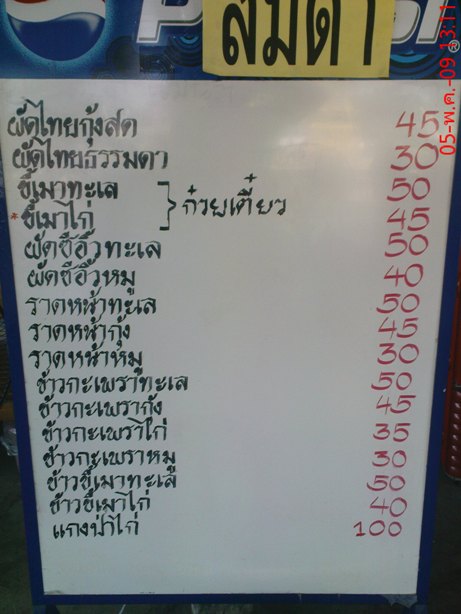 สมตา
05-พ.ค.-09 @ 13:11
ผัดไทยกุ้งสด 45
ผัดไทยธรรมดา 30
ขี้เมาทะเล 50
*ขี้เมาไก่ ก๋วยเตี๋ยว 45
ผัดซีอิ๊วทะเล 50
ผัดซีอิ้วหมู 40
ราดหน้าทะเล 50
ราดหน้ากุ้ง 45
ราดหน้าหมู 30
ข้าวกะเพราทะเล 50
ข้าวกะเพรากุ้ง 45
ข้าวกะเพราไก่ 35
ข้าวกะเพราหมู 30
ข้าวขี้เมาทะเล 50
ข้าวขี้เมาไก่ 40
แกงป่าไก่ 100